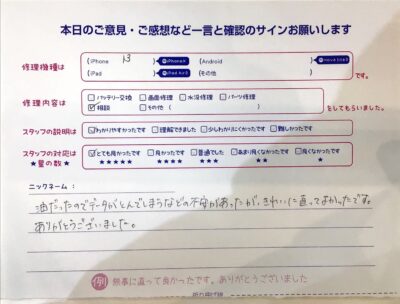 本日のご意見・ご感想など一言と確認のサインお願いします
修理機種は
(iPhone 13 ) iPhoneX (Android ) nova lite2
(iPad ) iPad Air2 (その他 ) です。
修理内容は
バッテリー交換 画面修理 水没修理 パーツ修理
相談 その他 ( ) をしてもらいました。
スタッフの説明は わかりやすかったです 理解できました 少しわかりにくかったです 難しかったです
スタッフの対応は とても良かったです 良かったです 普通でした あまり良くなかったです 良くなかったです
★星の数★ ★★★★★ ★★★★ ★★★ ★★ ★
ニックネーム:
だったのでデータがとんでしまうなどの不安があったが、きれいに直ってよかったです。
ありがとうございました。
例 無事に直って良かったです。ありがとうございました